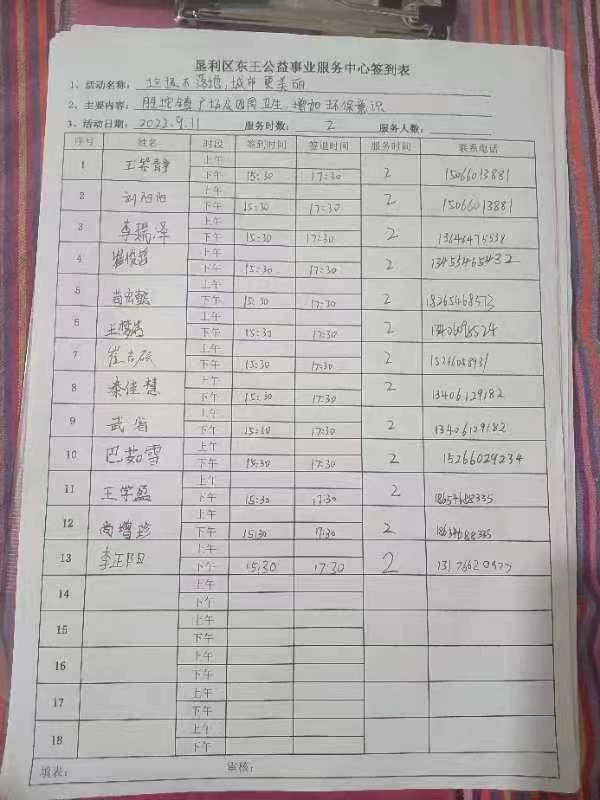 垦利区东王公益事业服务中心签到表
1、活动名称：垃圾不落地，城市更美丽
2、主要内容：胜坨镇广场及四周卫生，增加环保意识
3、活动日期：2022.9.11 服务时数：2 服务人数：
序号 姓名 时段 签到时间 签退时间 服务时间 联系电话
1 王笑静 上午
下午 15:30 17:30 2 15066013881
2 刘阳阳 上午
下午 15:30 17:30 2 15066013881
3 李瑞泽 上午
下午 15:30 17:30 2
4 上午
下午 15:30 17:30 2 13455465432
5 上午
下午 15:30 17:30 2 18265468573
6 上午
下午 15:30 17:30 2
7 上午
下午 15:30 17:30 2
8 秦佳慧 上午
下午 15:30 17:30 2 13406129182
9 武省 上午
下午 15:30 17:30 2 13406129182
10 巴茹雪 上午
下午 15:30 17:30 2 15266029234
11 王学盈 上午
下午 15:30 17:30 2 18654688335
12 尚增珍 上午
下午 15:30 17:30 2 18654688335
13 李正阳 上午
下午 15:30 17:30 2
14 上午
下午
15 上午
下午
16 上午
下午
17 上午
下午
18 上午
下午
填表： 审核：